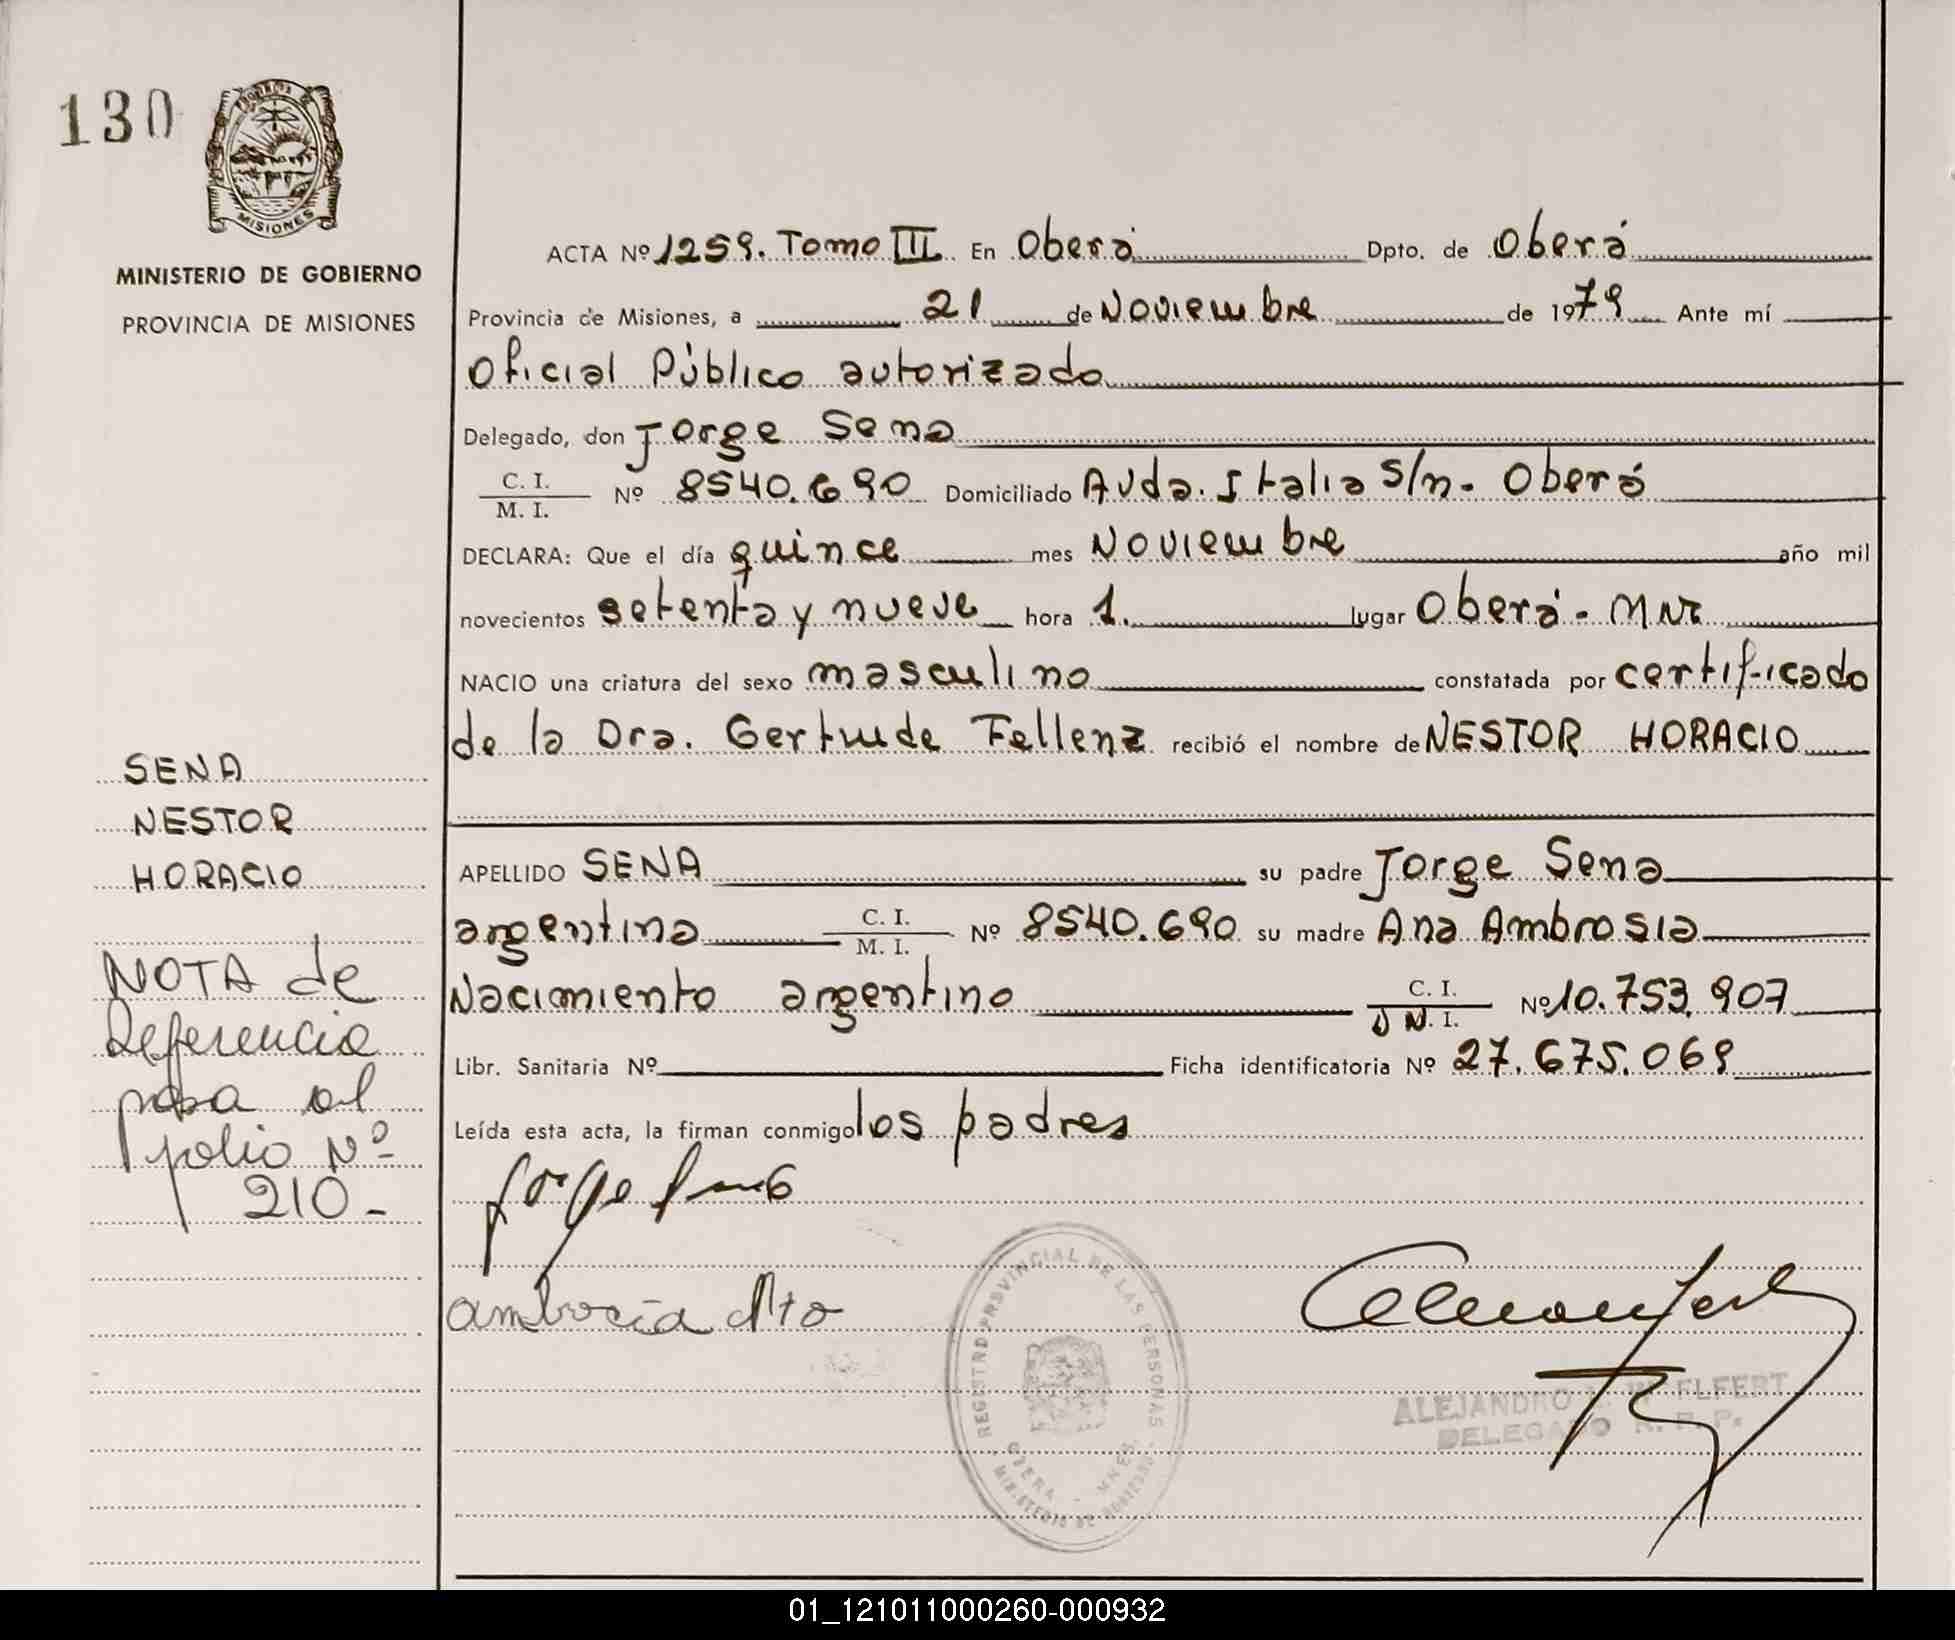 130
PROVINCIA DE
MISIONES
MINISTERIO DE GOBIERNO
PROVINCIA DE MISIONES
ACTA Nº 1259. Tomo III En Oberá Dpto. de Oberá
Provincia de Misiones, a 21 de Noviembre de 1979 Ante mí
Oficial Público autorizado
Delegado, don Jorge Sena
C. I.
M. I. Nº 8540.690 Domiciliado Avda. Italia s/n. Oberá
DECLARA: Que el día quince mes Noviembre año mil
novecientos setenta y nueve hora 1. lugar Oberá - Mnes
NACIO una criatura del sexo masculino constatada por certificado
de la Dra. Gertrude Fellenz recibió el nombre de NESTOR HORACIO
SENA
NESTOR
HORACIO
APELLIDO SENA su padre Jorge Sena
argentino C. I.
M. I. Nº 8540.690 su madre Ana Ambrosia
Nacimiento argentino C. I.
D N. I. Nº 10.753.907
Libr. Sanitaria Nº Ficha identificatoria Nº 27.675.069
Leída esta acta, la firman conmigo los padres
NOTA de
Referencia
pasa al
folio Nº
210-
Jorge
REGISTRO PROVINCIAL DE LAS PERSONAS
OBERA - MNES.
MINISTERIO DE GOBIERNO
ALEJANDRO WELFERT
DELEGADO R. P. P.
01_121011000260-000932